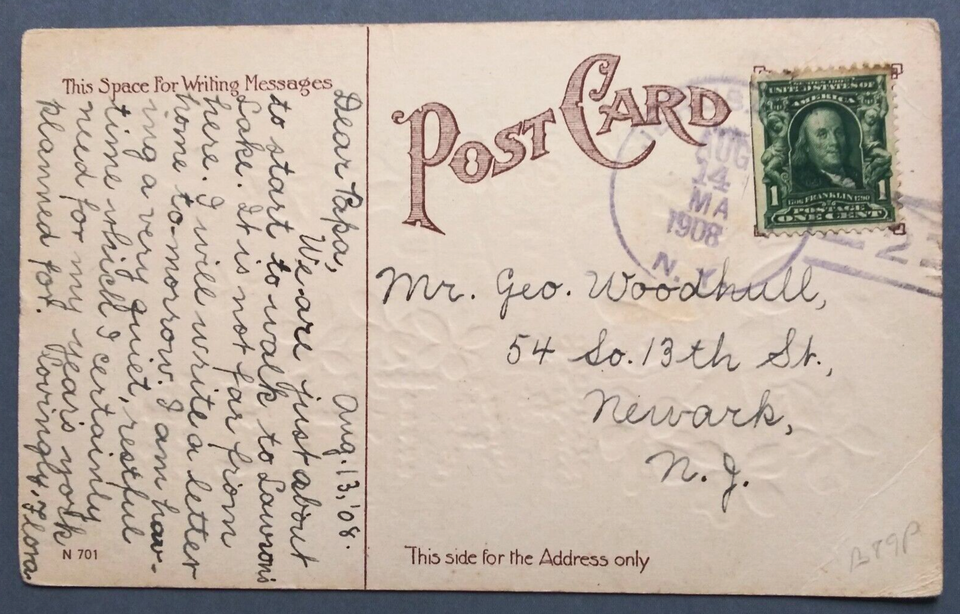 This Space For Writing Messages
Dear Papa, Aug. 13, '08.
We are just about
to start to walk to Lawson's
Lake. It is not far from
here. I will write a letter
home to-morrow. I am hav-
ing a very quiet, restful
time which I certainly
need for my years work
planned for. Lovingly, Flora.
N 701
POST CARD
AUG
14
MA
1908
N.Y.
SERIES 1902
UNITED STATES OF
AMERICA
1 1
1706 FRANKLIN 1790
POSTAGE
ONE CENT
Mr. Geo. Woodhull,
54 So. 13th St.,
Newark,
N.J.
This side for the Address only
B89P